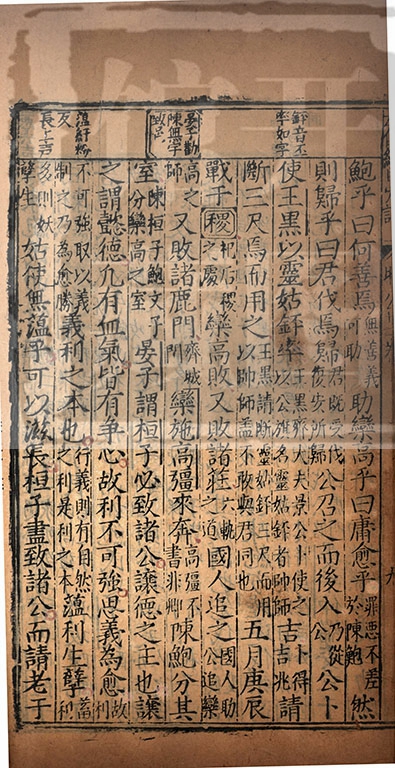 鮑乎曰何善焉無善義可助助欒高乎曰庸愈乎罪惡不差於陳鮑然
則歸乎曰君伐焉歸君既受伐復安所歸公召之而後入乃從公公卜
銔音丕
率如字
使王黑以靈姑銔率吉王黑齊大夫景公卜使之以公旗名靈姑銔者帥師卜得吉兆請
斷三尺焉而用之王黑請斷靈姑銔三尺而用以帥師蓋不敢與君同也五月庚辰
戰于稷祀后稷之處欒高敗又敗諸莊六軌之道國人追之國人助公追欒
晏子勸
陳無宇
致邑
高之師又敗諸鹿門齊城門欒施高彊來奔高彊不書非卿陳鮑分其
室陳桓子鮑文子分欒高之室晏子謂桓子必致諸公讓德之主也讓
之謂懿德凡有血氣皆有爭心故利不可強思義為愈故利
蘊紆粉
反
不可強取以義制之乃為愈勝義利之本也行義則有自然之利是利之本蘊利生孽蓄利
長上声
多則妖孽生姑使無蘊乎可以滋長桓子盡致諸公而請老于